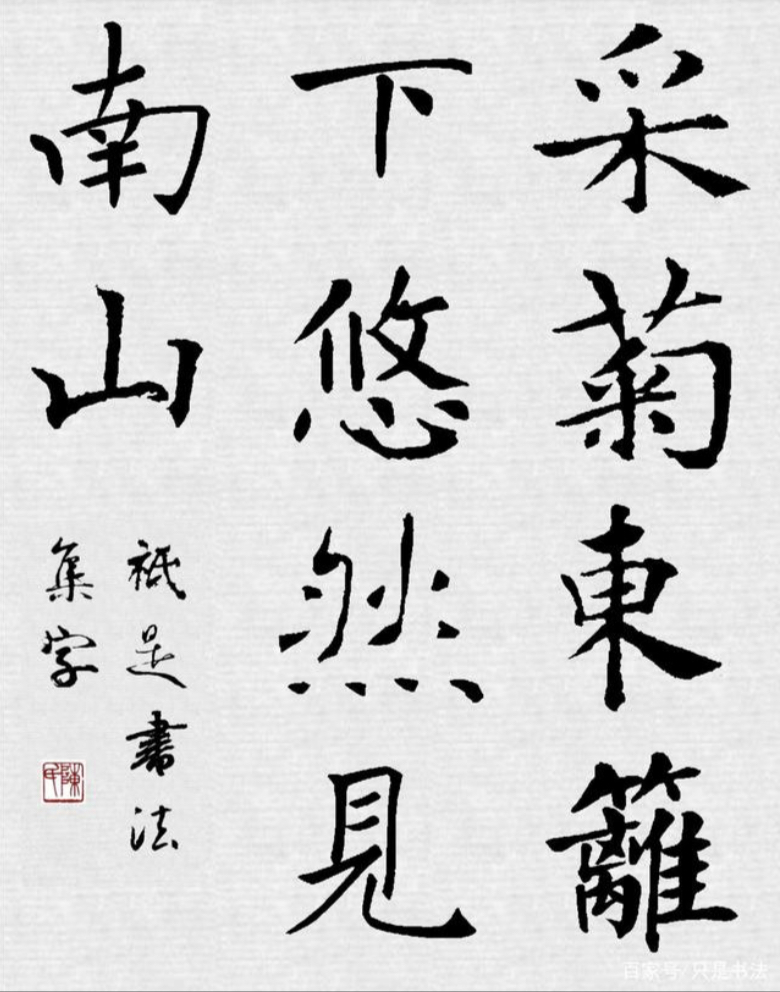 采菊東籬
下悠然見
南山
祇是書法
集字
陳氏
百家号/只是书法